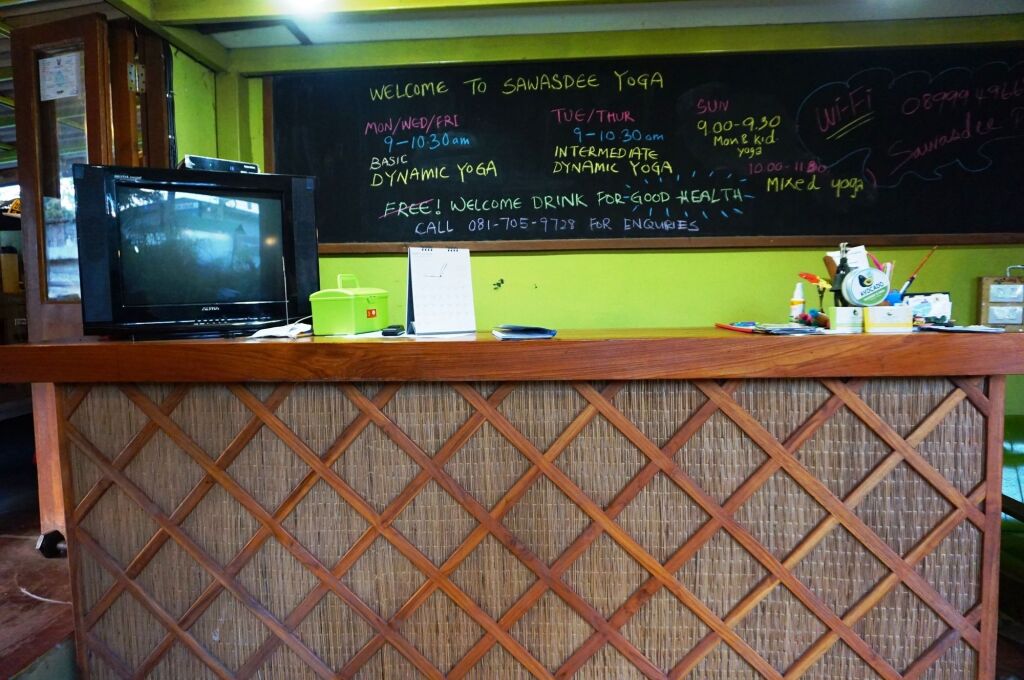 WELCOME TO SAWASDEE YOGA
MON/WED/FRI
9-10.30am
BASIC
DYNAMIC YOGA
TUE/THUR
9-10.30am
INTERMEDIATE
DYNAMIC YOGA
SUN
9.00-9.30
Mom & Kid
yoga
10.00-11.30
Mixed yoga
Wi-Fi
Sawasdee
FREE! WELCOME DRINK FOR GOOD HEALTH
CALL 081-705-9728 FOR ENQUIRIES
ALTRA
AVOCADO